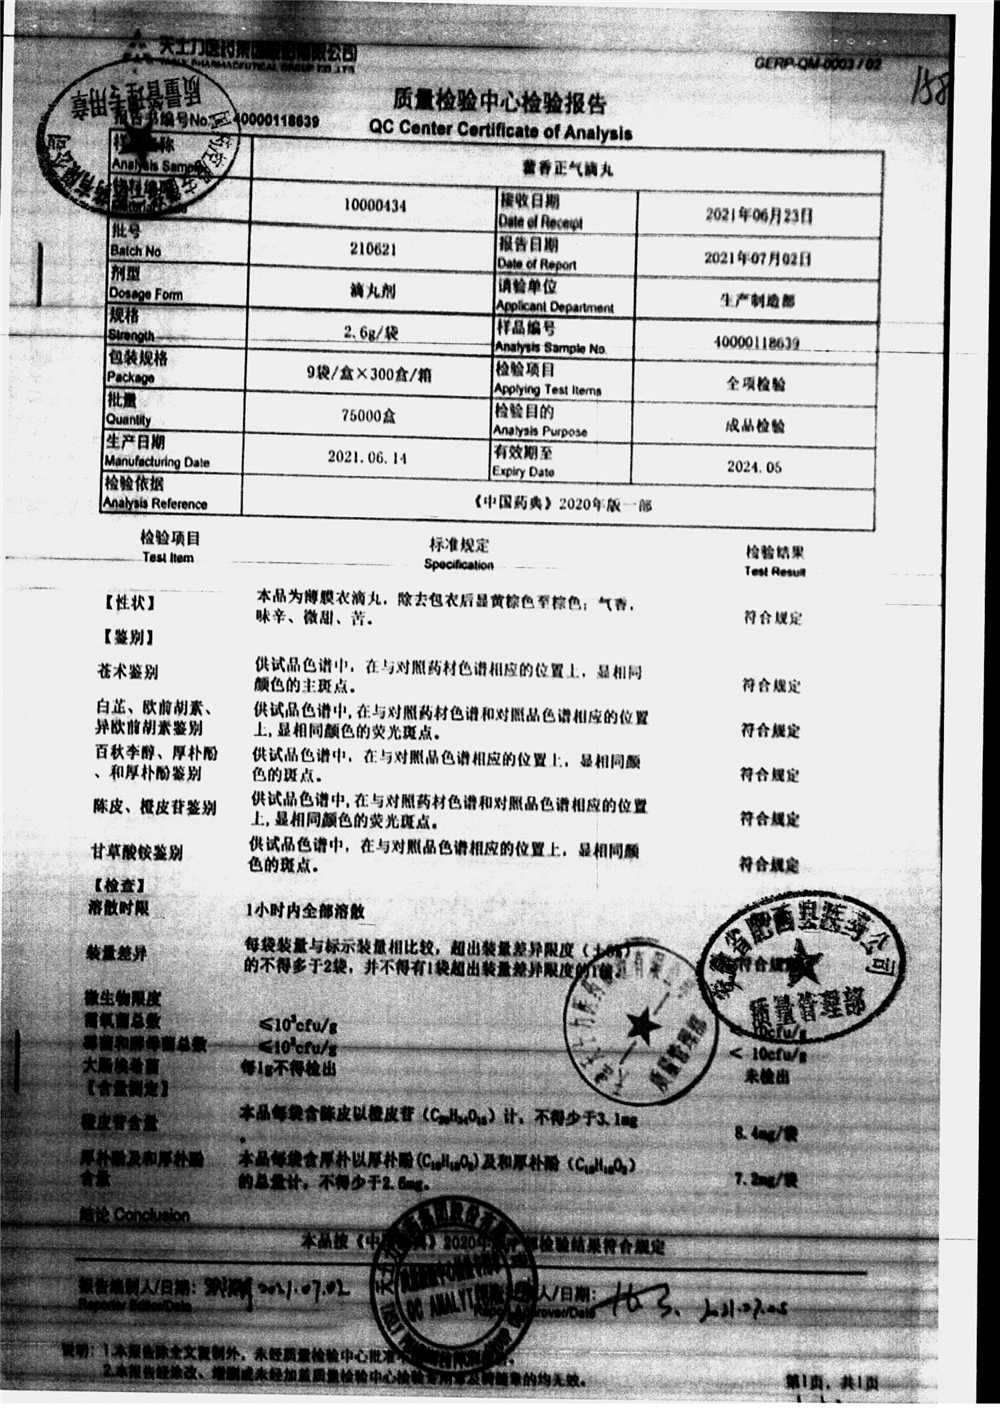 天士力医药集团股份有限公司
TASLY PHARMACEUTICAL GROUP CO.,LTD
GERP-QM-0003 / 02
质量检验中心检验报告
报告书编号No. 40000118639
QC Center Certificate of Analysis
Analysis Sample 藿香正气滴丸
10000434 接收日期 Date of Receipt 2021年06月23日
批号 Batch No 210621 报告日期 Date of Report 2021年07月02日
剂型 Dosage Form 滴丸剂 请验单位 Applicant Department 生产制造部
规格 Strength 2.6g/袋 样品编号 Analysis Sample No. 40000118639
包装规格 Package 9袋/盒×300盒/箱 检验项目 Applying Test Items 全项检验
批量 Quantity 75000盒 检验目的 Analysis Purpose 成品检验
生产日期 Manufacturing Date 2021.06.14 有效期至 Expiry Date 2024.05
检验依据 Analysis Reference 《中国药典》2020年版一部
检验项目 标准规定 检验结果
Test Item Specification Test Result
【性状】 本品为薄膜衣滴丸，除去包衣后显黄棕色至棕色；气香，
味辛、微甜、苦。 符合规定
【鉴别】
苍术鉴别 供试品色谱中，在与对照药材色谱相应的位置上，显相同
颜色的主斑点。 符合规定
白芷、欧前胡素、 供试品色谱中,在与对照药材色谱和对照品色谱相应的位置
异欧前胡素鉴别 上,显相同颜色的荧光斑点。 符合规定
百秋李醇、厚朴酚 供试品色谱中，在与对照品色谱相应的位置上，显相同颜
、和厚朴酚鉴别 色的斑点。 符合规定
陈皮、橙皮苷鉴别 供试品色谱中,在与对照药材色谱和对照品色谱相应的位置
上,显相同颜色的荧光斑点。 符合规定
甘草酸铵鉴别 供试品色谱中，在与对照品色谱相应的位置上，显相同颜
色的斑点。 符合规定
【检查】
溶散时限 1小时内全部溶散
装量差异 每袋装量与标示装量相比较，超出装量差异限度（±5%）
的不得多于2袋，并不得有1袋超出装量差异限度的1倍 符合规定
微生物限度
需氧菌总数 ≤10³cfu/g 10cfu/g
霉菌和酵母菌总数 ≤10²cfu/g < 10cfu/g
大肠埃希菌 每1g不得检出 未检出
【含量测定】
橙皮苷含量 本品每袋含陈皮以橙皮苷（C₂₈H₃₄O₁₅）计，不得少于3.1mg
。 8.4mg/袋
厚朴酚及和厚朴酚 本品每袋含厚朴以厚朴酚(C₁₈H₁₈O₂)及和厚朴酚（C₁₈H₁₈O₂）
含量 的总量计，不得少于2.5mg。 7.2mg/袋
结论 Conclusion
本品按《中国药典》2020年 检验结果符合规定
报告编制人/日期: 2021.07.02 人/日期:
Reporter Editor/Date Approver/Date
说明: 1.本报告除全文复制外，未经质量检验中心批准
2.本报告经涂改、增删或未经加盖质量检验中心检验专用章及骑缝章的均无效。
第1页，共1页
质量管理专用章
安徽省肥西县医药公司
质量管理部
质量管理部
QC ANALYT